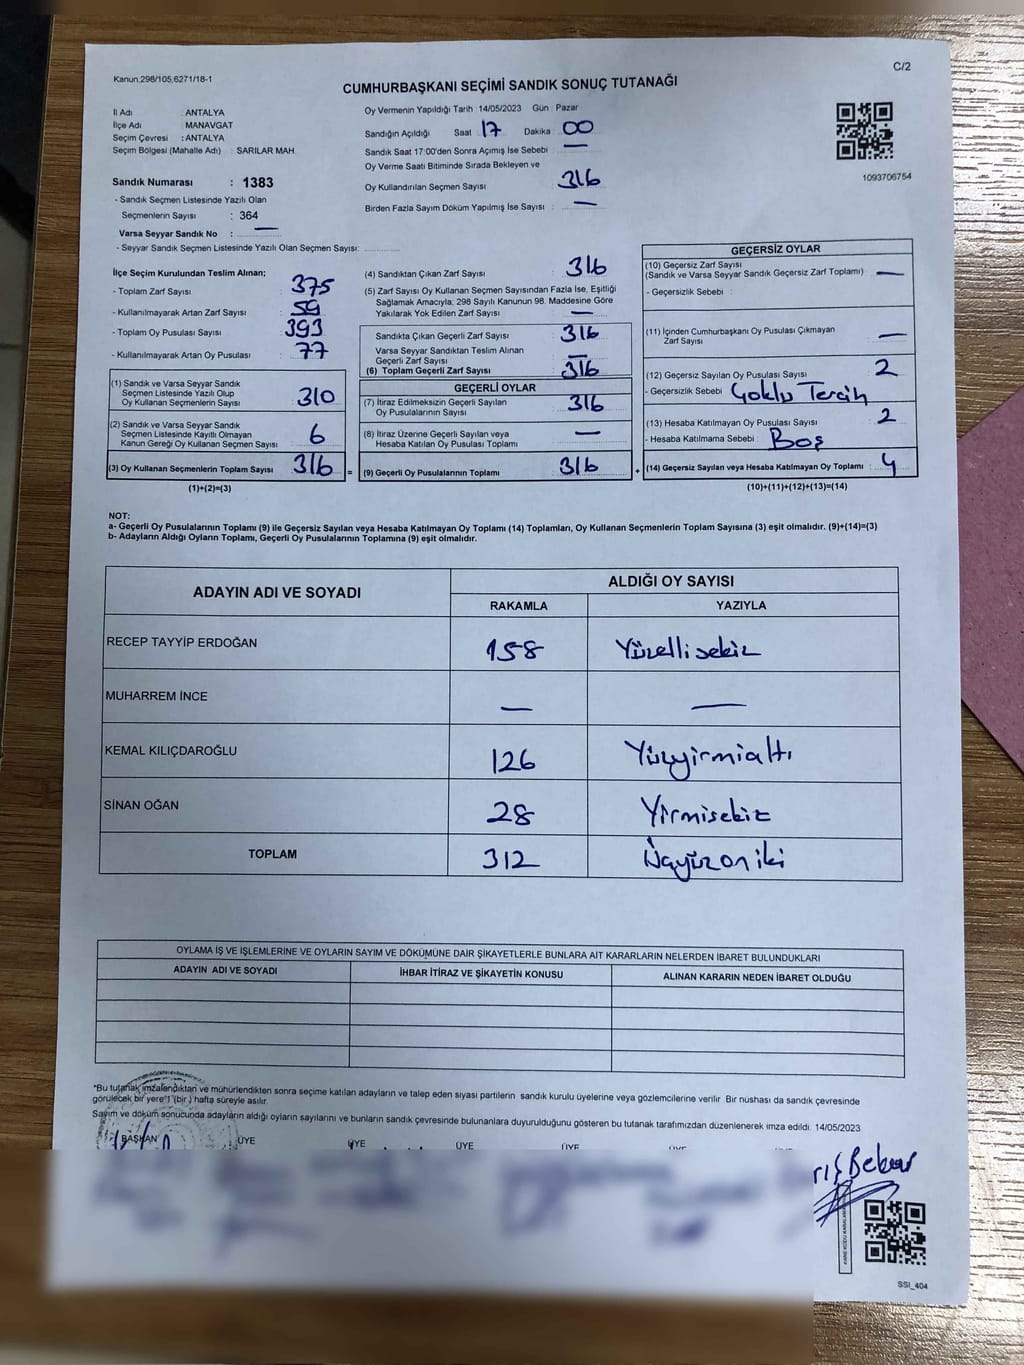 Kanun,298/105,6271/18-1
C/2
CUMHURBAŞKANI SEÇİMİ SANDIK SONUÇ TUTANAĞI
İl Adı : ANTALYA
İlçe Adı : MANAVGAT
Seçim Çevresi : ANTALYA
Seçim Bölgesi (Mahalle Adı) : SARILAR MAH.
Sandık Numarası : 1383
- Sandık Seçmen Listesinde Yazılı Olan
Seçmenlerin Sayısı : 364
Varsa Seyyar Sandık No : —
- Seyyar Sandık Seçmen Listesinde Yazılı Olan Seçmen Sayısı:
Oy Vermenin Yapıldığı Tarih : 14/05/2023 Gün : Pazar
Sandığın Açıldığı Saat 17 Dakika 00
Sandık Saat 17:00'den Sonra Açımış İse Sebebi : —
Oy Verme Saati Bitiminde Sırada Bekleyen ve
Oy Kullandırılan Seçmen Sayısı : 316
Birden Fazla Sayım Döküm Yapılmış İse Sayısı : —
1093706754
İlçe Seçim Kurulundan Teslim Alınan;
- Toplam Zarf Sayısı : 375
- Kullanılmayarak Artan Zarf Sayısı : 59
- Toplam Oy Pusulası Sayısı : 393
- Kullanılmayarak Artan Oy Pusulası : 77
(1) Sandık ve Varsa Seyyar Sandık
Seçmen Listesinde Yazılı Olup
Oy Kullanan Seçmenlerin Sayısı : 310
(2) Sandık ve Varsa Seyyar Sandık
Seçmen Listesinde Kayıtlı Olmayan
Kanun Gereği Oy Kullanan Seçmen Sayısı : 6
(3) Oy Kullanan Seçmenlerin Toplam Sayısı : 316
(1)+(2)=(3)
(4) Sandıktan Çıkan Zarf Sayısı : 316
(5) Zarf Sayısı Oy Kullanan Seçmen Sayısından Fazla İse, Eşitliği
Sağlamak Amacıyla; 298 Sayılı Kanunun 98. Maddesine Göre
Yakılarak Yok Edilen Zarf Sayısı : —
Sandıkta Çıkan Geçerli Zarf Sayısı : 316
Varsa Seyyar Sandıktan Teslim Alınan
Geçerli Zarf Sayısı : —
(6) Toplam Geçerli Zarf Sayısı : 316
GEÇERLİ OYLAR
(7) İtiraz Edilmeksizin Geçerli Sayılan
Oy Pusulalarının Sayısı : 316
(8) İtiraz Üzerine Geçerli Sayılan veya
Hesaba Katılan Oy Pusulası Toplamı : —
= (9) Geçerli Oy Pusulalarının Toplamı : 316 +
GEÇERSİZ OYLAR
(10) Geçersiz Zarf Sayısı
(Sandık ve Varsa Seyyar Sandık Geçersiz Zarf Toplamı) : —
- Geçersizlik Sebebi :
(11) İçinden Cumhurbaşkanı Oy Pusulası Çıkmayan
Zarf Sayısı : —
(12) Geçersiz Sayılan Oy Pusulası Sayısı : 2
- Geçersizlik Sebebi : Çoklu Tercih
(13) Hesaba Katılmayan Oy Pusulası Sayısı : 2
- Hesaba Katılmama Sebebi : Boş
(14) Geçersiz Sayılan veya Hesaba Katılmayan Oy Toplamı : 4
(10)+(11)+(12)+(13)=(14)
NOT:
a- Geçerli Oy Pusulalarının Toplamı (9) ile Geçersiz Sayılan veya Hesaba Katılmayan Oy Toplamı (14) Toplamları, Oy Kullanan Seçmenlerin Toplam Sayısına (3) eşit olmalıdır. (9)+(14)=(3)
b- Adayların Aldığı Oyların Toplamı, Geçerli Oy Pusulalarının Toplamına (9) eşit olmalıdır.
ADAYIN ADI VE SOYADI ALDIĞI OY SAYISI
RAKAMLA YAZIYLA
RECEP TAYYİP ERDOĞAN 158 Yüzellisekiz
MUHARREM İNCE — —
KEMAL KILIÇDAROĞLU 126 Yüzyirmialtı
SİNAN OĞAN 28 Yirmisekiz
TOPLAM 312 Üçyüzoniki
OYLAMA İŞ VE İŞLEMLERİNE VE OYLARIN SAYIM VE DÖKÜMÜNE DAİR ŞİKAYETLERLE BUNLARA AİT KARARLARIN NELERDEN İBARET BULUNDUKLARI
ADAYIN ADI VE SOYADI İHBAR İTİRAZ VE ŞİKAYETİN KONUSU ALINAN KARARIN NEDEN İBARET OLDUĞU
*Bu tutanak imzalandıktan ve mühürlendikten sonra seçime katılan adayların ve talep eden siyasi partilerin sandık kurulu üyelerine veya gözlemcilerine verilir. Bir nüshası da sandık çevresinde
görülecek bir yere 1 (bir) hafta süreyle asılır.
Sayım ve döküm sonucunda adayların aldığı oyların sayılarını ve bunların sandık çevresinde bulunanlara duyurulduğunu gösteren bu tutanak tarafımızdan düzenlenerek imza edildi. 14/05/2023
BAŞKAN ÜYE ÜYE ÜYE ÜYE ÜYE
Bebar
SSI_404